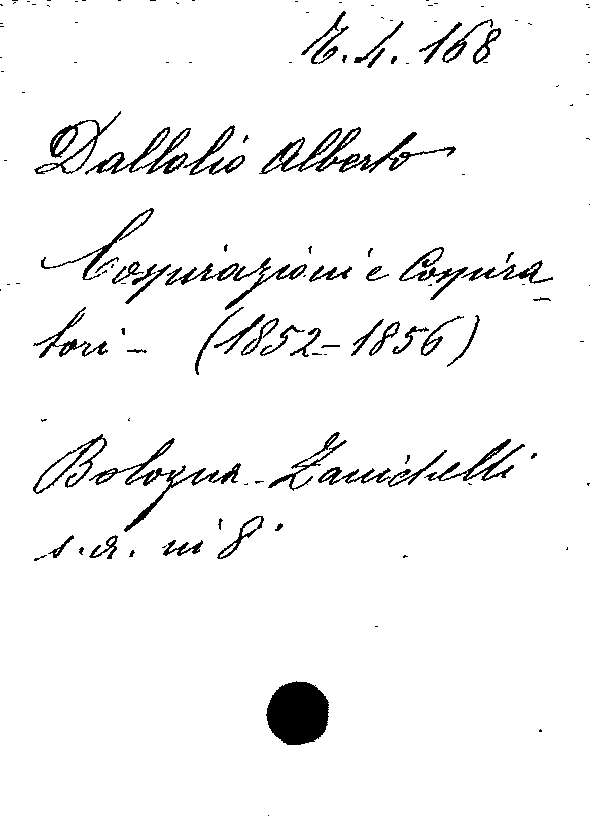 E. 4. 168
Dallolio Alberto
Cospirazioni e Cospira_
tori - (1852-1856)
Bologna - Zanichelli
s.a. in 8°